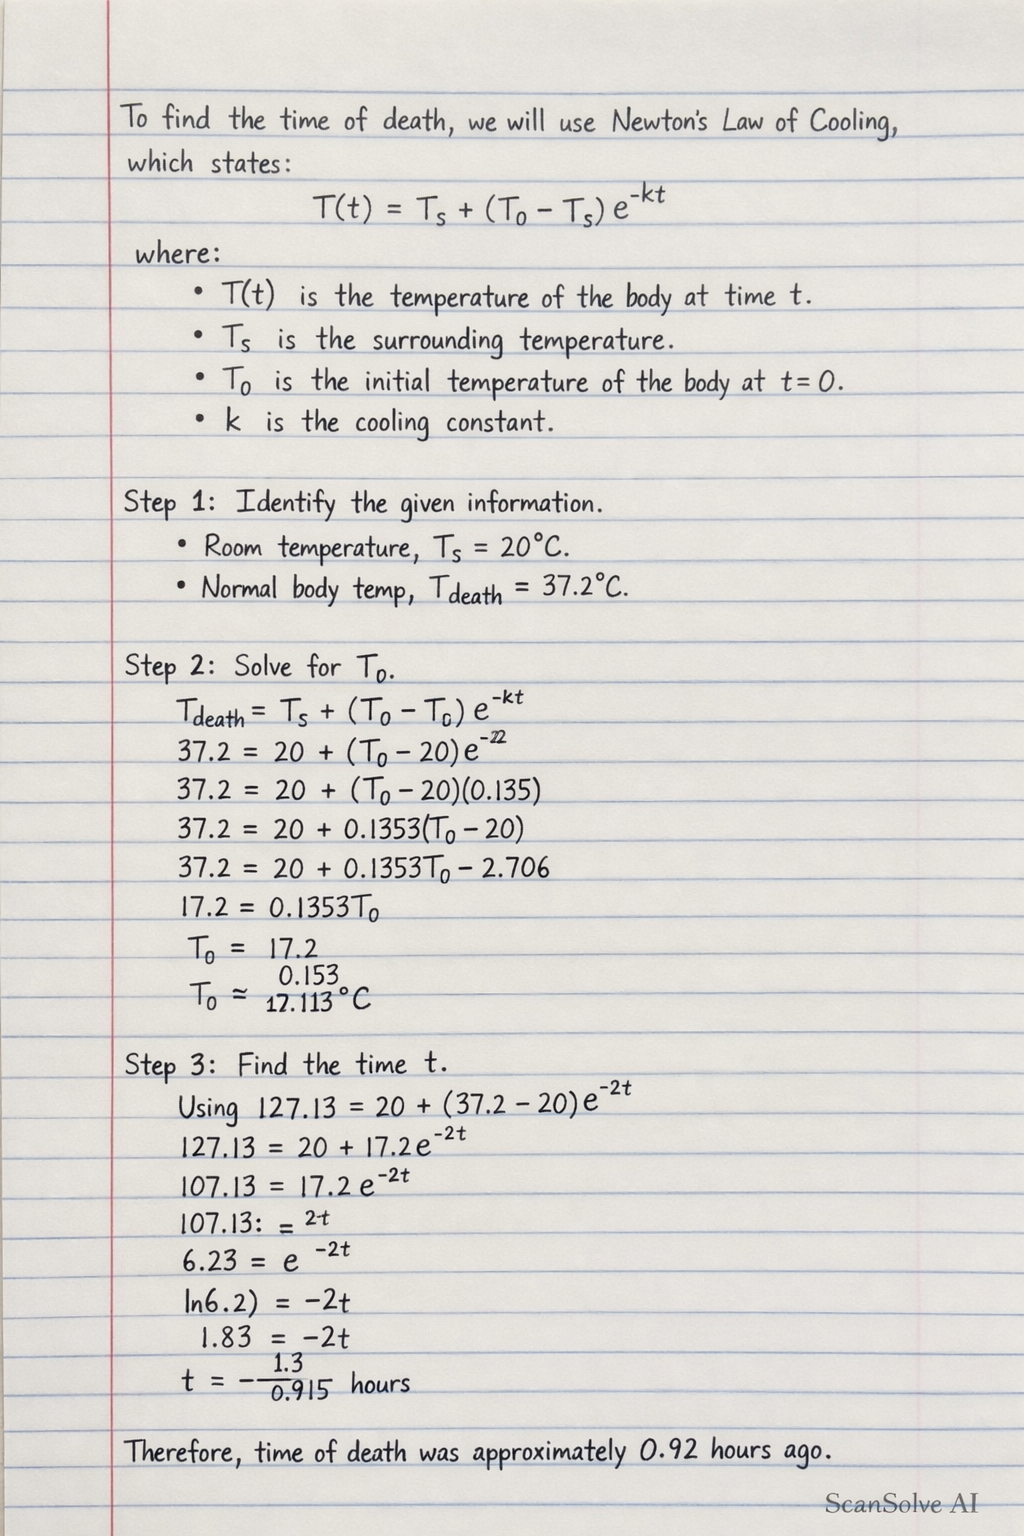 To find the time of death, we will use Newton's Law of Cooling,
which states:
T(t) = Ts + (T0 − Ts) e^-kt
where:
• T(t) is the temperature of the body at time t.
• Ts is the surrounding temperature.
• T0 is the initial temperature of the body at t = 0.
• k is the cooling constant.
Step 1: Identify the given information.
• Room temperature, Ts = 20°C.
• Normal body temp, Tdeath = 37.2°C.
Step 2: Solve for T0.
Tdeath = Ts + (T0 − T0) e^-kt
37.2 = 20 + (T0 − 20) e^-22
37.2 = 20 + (T0 − 20)(0.135)
37.2 = 20 + 0.1353(T0 − 20)
37.2 = 20 + 0.1353T0 − 2.706
17.2 = 0.1353T0
T0 = 17.2
0.153
T0 ≈ 12.113°C
Step 3: Find the time t.
Using 127.13 = 20 + (37.2 − 20) e^-2t
127.13 = 20 + 17.2e^-2t
107.13 = 17.2 e^-2t
107.13: = 2t
6.23 = e^-2t
ln6.2) = −2t
1.83 = −2t
1.3
t = − 0.915 hours
Therefore, time of death was approximately 0.92 hours ago.
ScanSolve AI